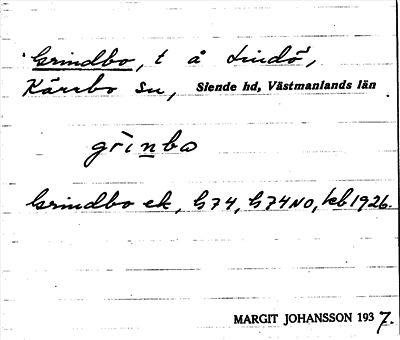 Grindbo, t å Lindö,
Kärrbo sn, Siende hd, Västmanlands län
grìnbo
Grindbo ek, G74, G74NO, kb 1926.
MARGIT JOHANSSON 1937.